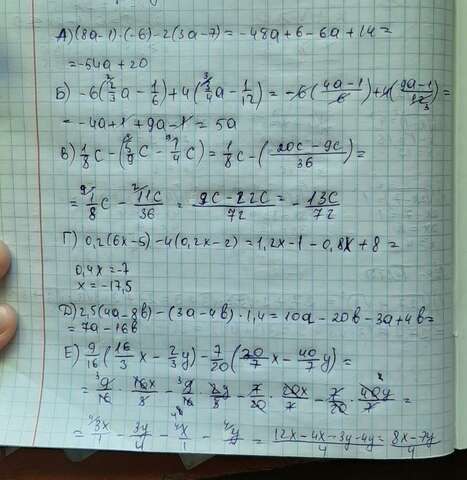 А) (8a-1)·(-6)-2(3a-7)=-48a+6-6a+14=
=-54a+20
Б) -6(2/3a-1/6)+4(3/4a-1/12)=-6((4a-1)/6)+4((9a-1)/12)=
=-4a+1+9a-1=5a
В) 1/8c-(5/9c-1/4c)=1/8c-((20c-9c)/36)=
=1/8c-11c/36=(9c-22c)/72=-13c/72
Г) 0,2(6x-5)-4(0,2x-2)=1,2x-1-0,8x+8=
0,4x=-7
x=-17,5
Д) 2,5(4a-8b)-(3a-4b)·1,4=10a-20b-3a+4b=
=7a-16b
Е) 9/16(16/3x-2/3y)-7/20(20/7x-40/7y)=
=9/16·16x/3-9/16·2y/3-7/20·20x/7-7/20·40y/7=
=3x/1-3y/4-x/1-y/1=(12x-4x-3y-4y)/4=(8x-7y)/4